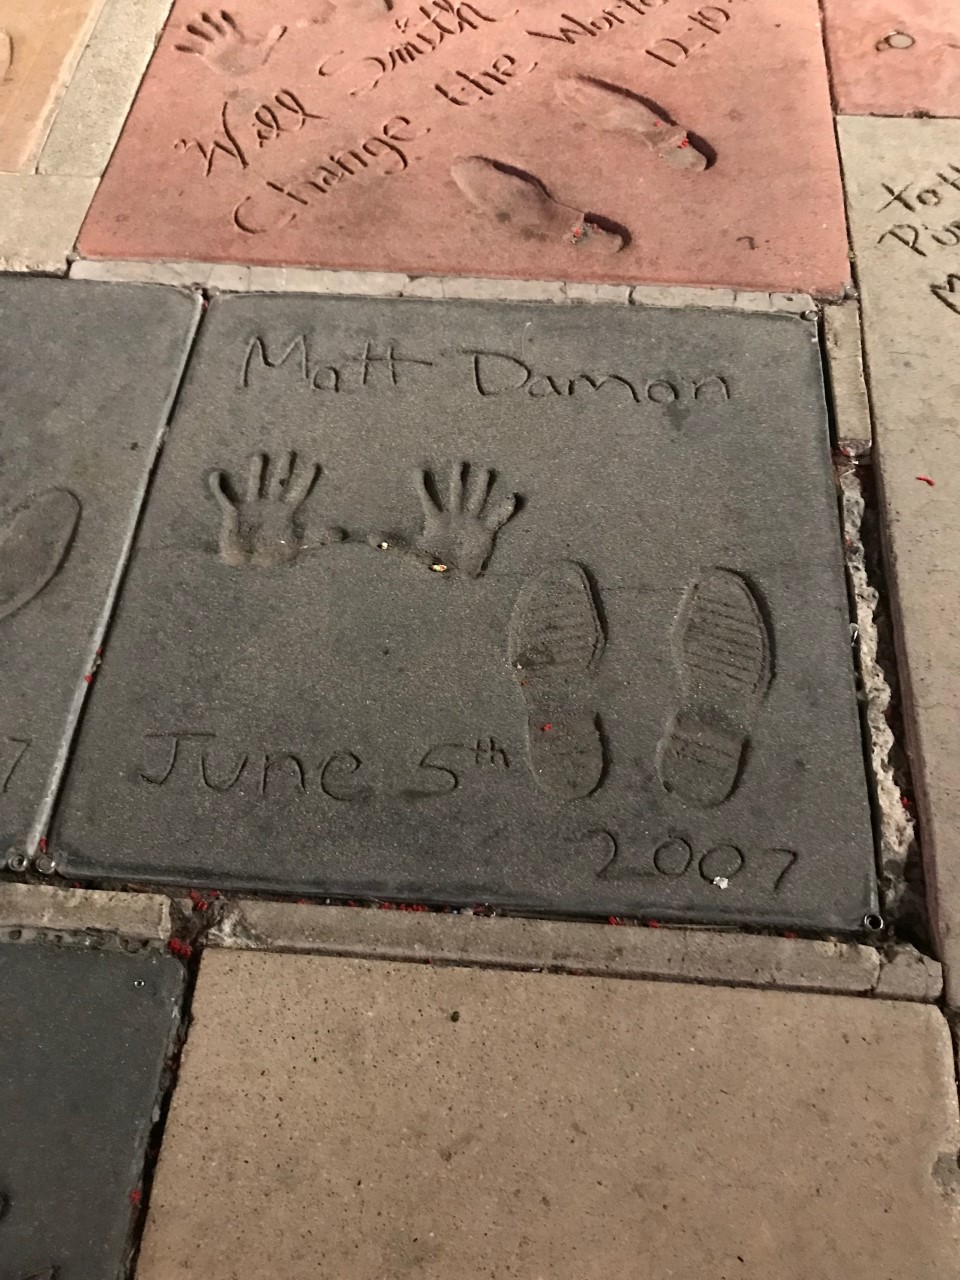 Will Smith
Change the World
12·10
Matt Damon
June 5th
2007
7
To H